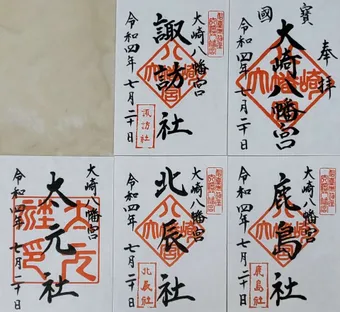 奉拝
國寶
大崎八幡宮
令和四年七月二十日
大崎八幡宮
諏訪社
諏訪社
令和四年七月二十日
大崎八幡宮
鹿島社
鹿島社
令和四年七月二十日
大崎八幡宮
北辰社
北辰社
令和四年七月二十日
大崎八幡宮
大元社
令和四年七月二十日